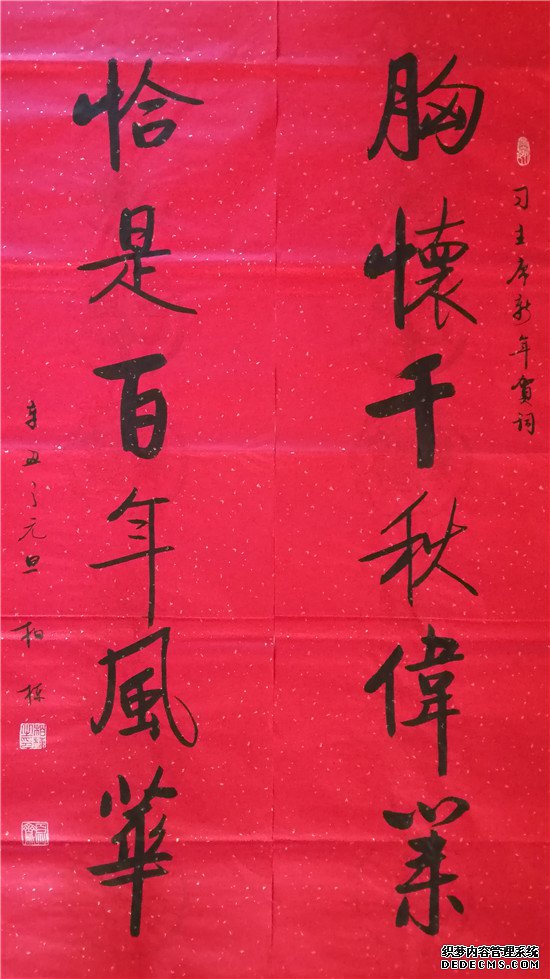 习主席新年賀詞
胸懷千秋偉業
恰是百年風華
辛丑之元旦 柏
织梦内容管理系统
DEDECMS.COM